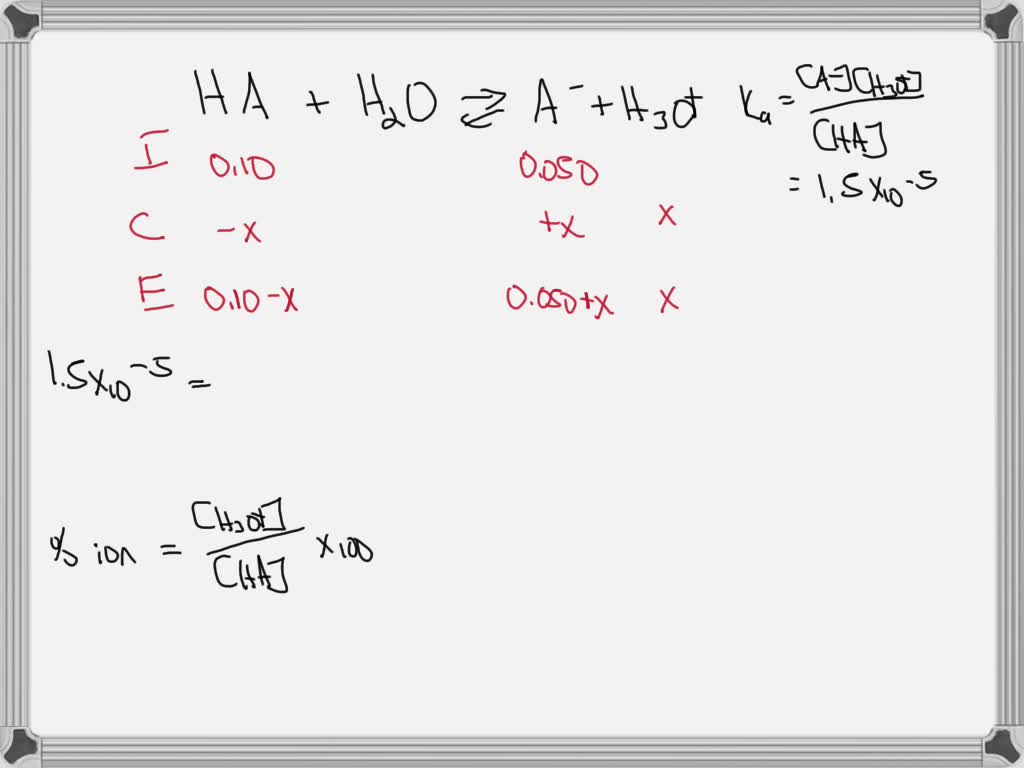 HA + H₂O ⇌ A⁻ + H₃O⁺ Ka = [A⁻][H₃O⁺] / [HA]
= 1.5x10⁻⁵
I 0.10 0.050
C -x +x x
E 0.10-x 0.050+x x
1.5x10⁻⁵ =
% ion = [H₃O⁺] / [HA] x 100